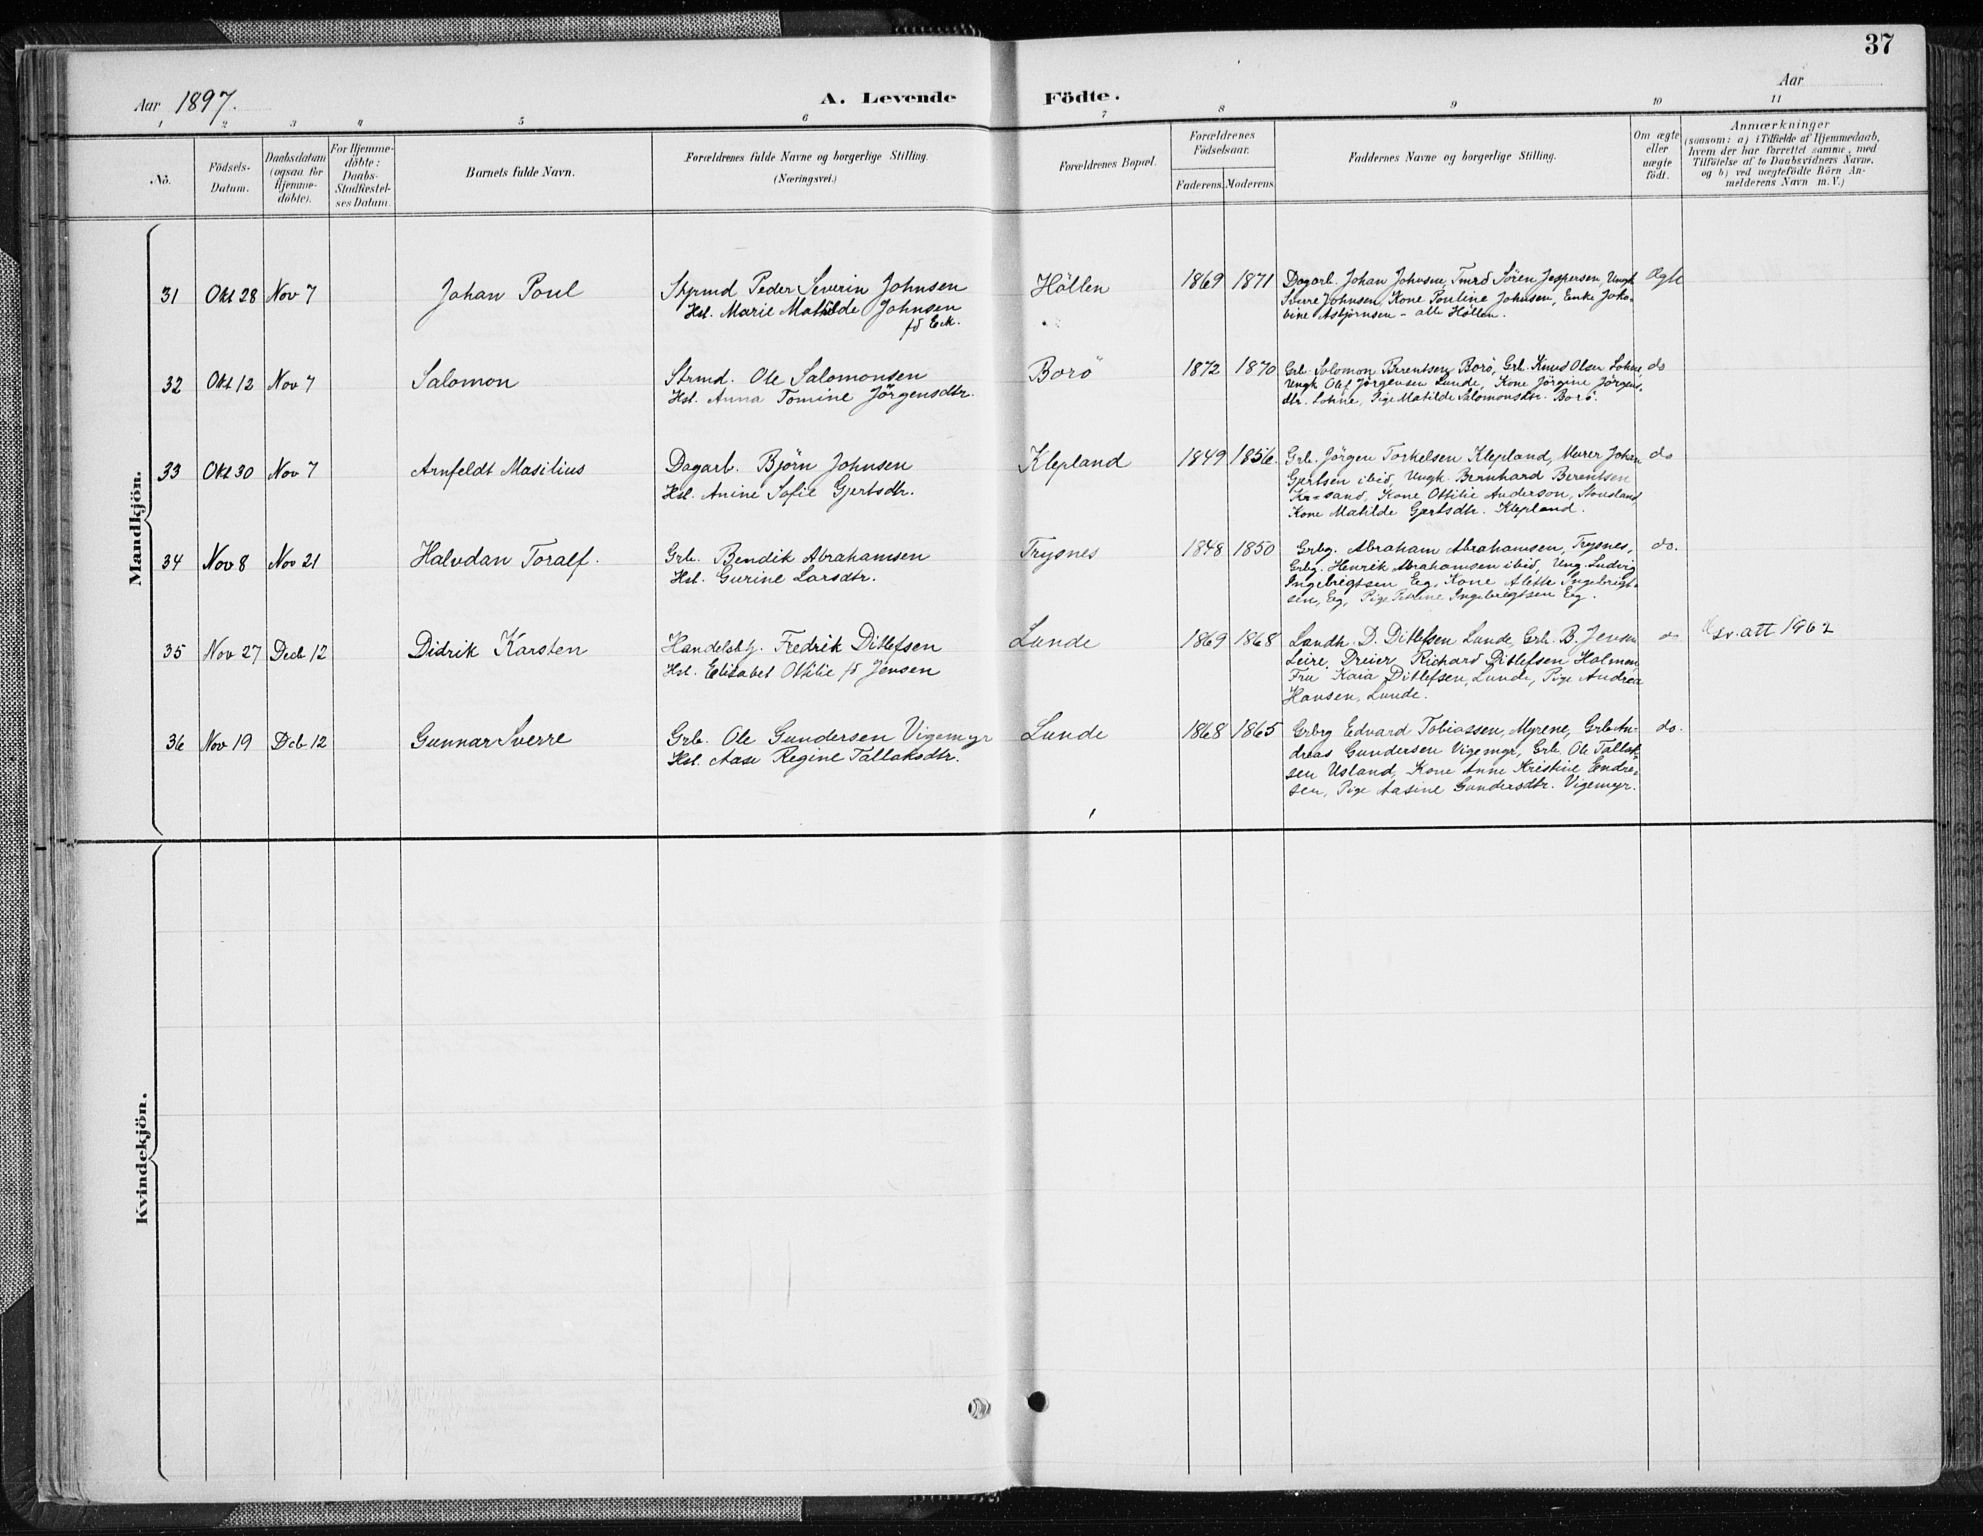 37
Aar 1897.
A. Levende Födte.
Aar
1 2 3 4 5 6 7 8 9 10 11
No.
Födsels-Datum.
Daabsdatum (ogsaa for Hjemme-döbte).
For Hjemme-döbte: Daabs-Stadfæstel-ses Datum.
Barnets fulde Navn.
Forældrenes fulde Navne og borgerlige Stilling.
(Næringsvei.)
Forældrenes Bopæl.
Forældrenes Födselsaar.
Faderens. Moderens.
Faddernes Navne og borgerlige Stilling.
Om ægte eller uægte födt.
Anmærkninger
(saasom: a) i Tilfælde af Hjemmedaab,
hvem der har forrettet samme, med
Tilföielse af to Daabsvidners Navne,
og b) ved uægtefödte Börn An-
melderens Navn m. V.)
Mandkjön.
31 Okt 28 Nov 7 Johan Poul
Styrmd Peder Severin Johnsen
Hst. Marie Mathilde Johnsen
fd Eek.
Höllen 1869 1871
Dagarb. Johan Johnsen, Tmrd Sören Jespersen, Ungk
Sverre Johnsen, Kone Pouline Johnsen, Enke Jako-
bine Asbjörnsen - alle Höllen.
Ægte
32 Okt 12 Nov 7 Salomon
Strmd. Ole Salomonsen
Hst. Anna Tomine Jörgensdtr.
Borö 1872 1870
Grb. Solomon Berentsen Borö, Grb. Knud Olsen Lohne,
Ungk Olaf Jörgensen Lunde, Kone Jörgine Jörgens-
dtr. Lohne, Pige Matilde Salomonsdtr. Borö.
do
33 Okt 30 Nov 7 Arnfeldt Masilius
Dagarb. Björn Johnsen
Hst. Anine Sofie Gjertsdtr.
Klepland 1849 1856.
Grb. Jörgen Torkelsen Klepland, Murer Johan
Gjertsen ibid, Ungk. Bernhard Berentsen
Kr=sand, Kone Ottilie Anderson, Stousland,
Kone Matilde Gjertsdtr. Klepland.
do
34 Nov 8 Nov 21 Halvdan Toralf.
Grb. Bendik Abrahamsen
Hst. Gurine Larsdtr.
Trysnes 1848 1850
Grbg. Abraham Abrahamsen, Trysnes,
Grbg. Henrik Abrahamsen ibid, Ung. Ludvig
Ingebrigtsen Eeg, Kone Alette Ingebrigt-
sen, Eeg, Pige Petrine Ingebrigtsen Eeg.
do.
35 Nov 27 Decb 12 Didrik Karsten
Handelsbtj. Fredrik Ditlefsen
Hst. Elisabet Ottilie fd Jensen
Lunde 1869 1868
Landh. D. Ditlefsen Lunde, Grb. B. Jensen
Leire, Dreier Richard Ditlefsen Holmen,
Fru Kaia Ditlefsen, Lunde, Pige Andrea
Hansen, Lunde.
do
att 1962
36 Nov 19 Dcb 12 Gunnar Sverre
Grb. Ole Gundersen Vigemyr
Hst. Aase Regine Tallaksdtr.
Lunde 1868 1865
Grbrg Edvard Tobiassen, Myrene, Grb. An-
dreas Gundersen Vigemyr, Grb. Ole Tallak-
sen Usland, Kone Anne Kristine Endre-
sen, Pige Aasine Gundersdtr. Vigemyr.
do.
Kvindekjön.